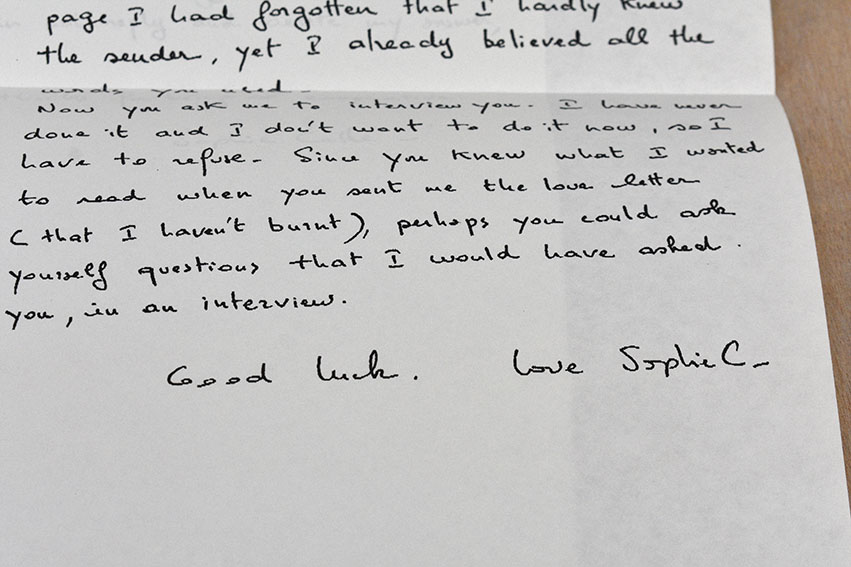 page I had forgotten that I hardly knew
the sender, yet I already believed all the
words you used.
Now you ask me to interview you. I have never
done it and I don't want to do it now, so I
have to refuse. Since you knew what I wanted
to read when you sent me the love letter
( that I haven't burnt), perhaps you could ask
yourself questions that I would have asked.
you, in an interview.
Good luck. Love Sophie C.